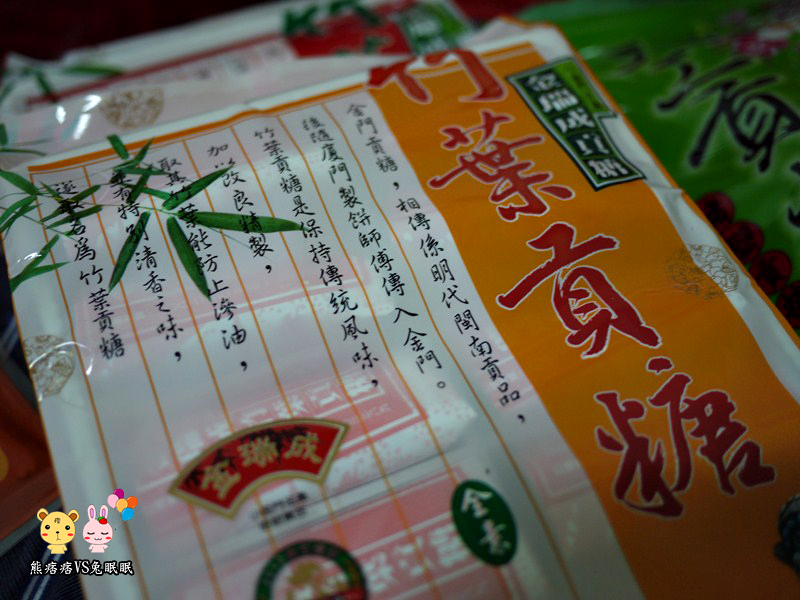 竹葉貢糖
金瑞成貢糖
金門貢糖，相傳係明代閩南貢品，
後隨廈門製餅師傅傳入金門。
竹葉貢糖是保持傳統風味，
加以改良精製，
取其竹葉能防止滲油，
並有特別清香之味，
遂取名為竹葉貢糖
金瑞成
全素
貢
熊痞痞VS兔眠眠